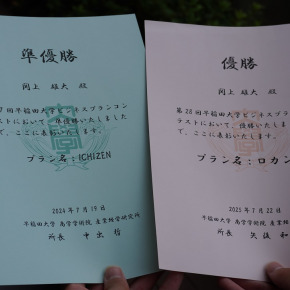 準優勝
上 雄大 殿
7回早稲田大学ビジネスプランコン
ストにおいて、準優勝いたしました
で、ここに表彰いたします。
プラン名：ICHIZEN
2024年7月19日
早稲田大学 商学学術院 産業経営研究所
所長 中出 哲
優勝
上 雄大 殿
第28回早稲田大学ビジネスプラ
テストにおいて、優勝いたしま
で、ここに表彰いたします。
プラン名：ロカン
2025年7月22日
早稲田大学 商学学術院 産業経営
所長 矢後 和